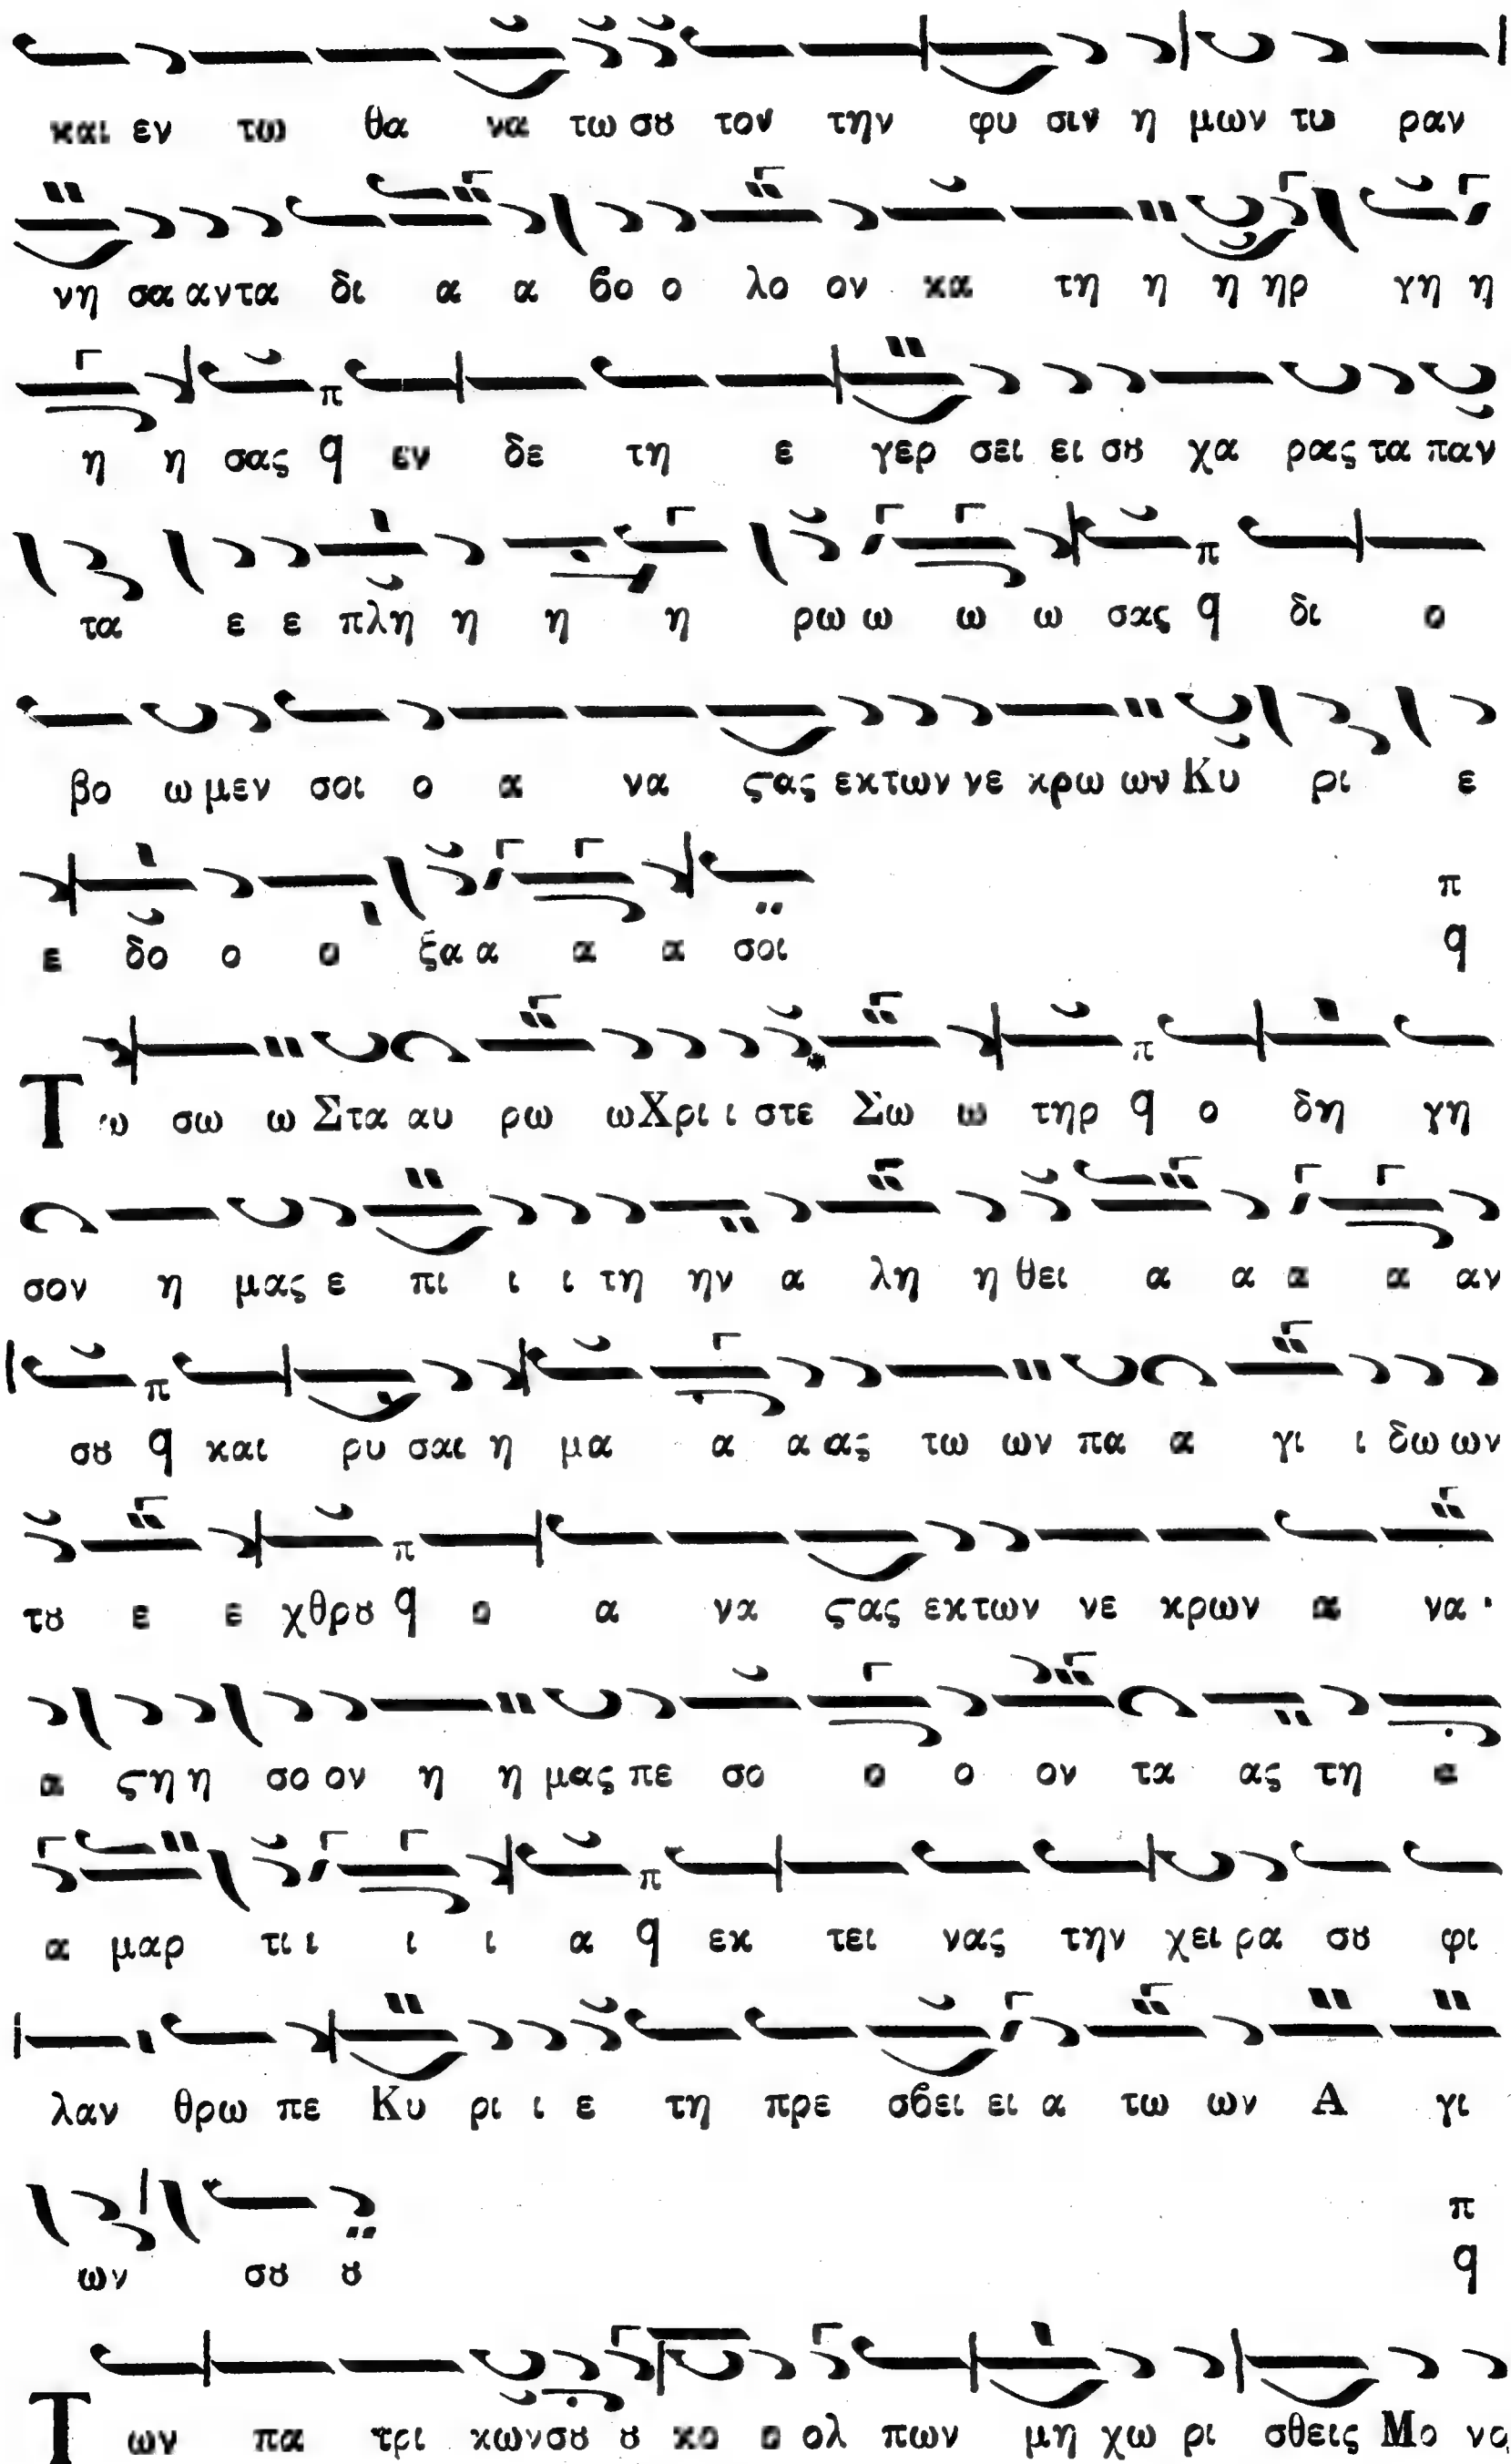 και εν τω θα να τω σȣ τον την φυ σιν η μων τυ ραν
νη σα αντα δι α α βο ο λο ον κα τη η η ηρ γη η
η η σας π q εν δε τη ε γερ σει ει σȣ χα ρας τα παν
τα ε ε πλη η η η ρω ω ω ω σας π q δι ο
βο ω μεν σοι ο α να ϛας εκ των νε κρω ων Κυ ρι ε
ε δο ο ο ξα α α α σοι π q
Τω σω ω Στα αυ ρω ω Χρι ι στε Σω ω τηρ π q ο δη γη
σον η μας ε πι ι ι τη ην α λη η θει α α α α αν
σȣ π q και ρυ σαι η μα α α ας τω ων πα α γι ι δω ων
τȣ ε ε χθρȣ π q ο α να ϛας εκ των νε κρων α να
α ϛη η σο ον η η μας πε σο ο ο ον τα ας τη
α μαρ τι ι ι ι α π q εκ τει νας την χει ρα σȣ φι
λαν θρω πε Κυ ρι ι ε τη πρε σβει ει α τω ων Α γι
ων σȣ ȣ π q
Των πα τρι κων σȣ ȣ κο ο ολ πων μη χω ρι σθεις Μο νο